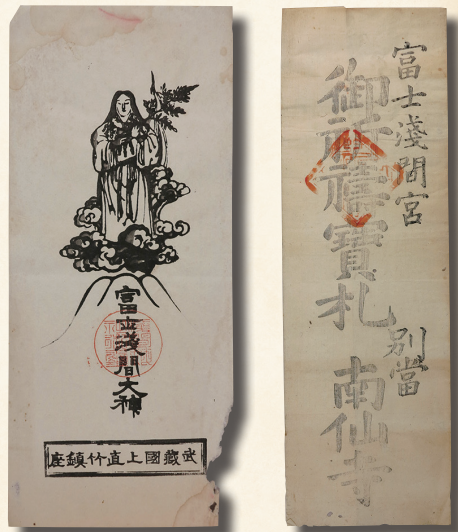 富士淺間大神
武藏國上直竹鎮座
富士淺間宮 別當
御祈禱寶札 南仙寺